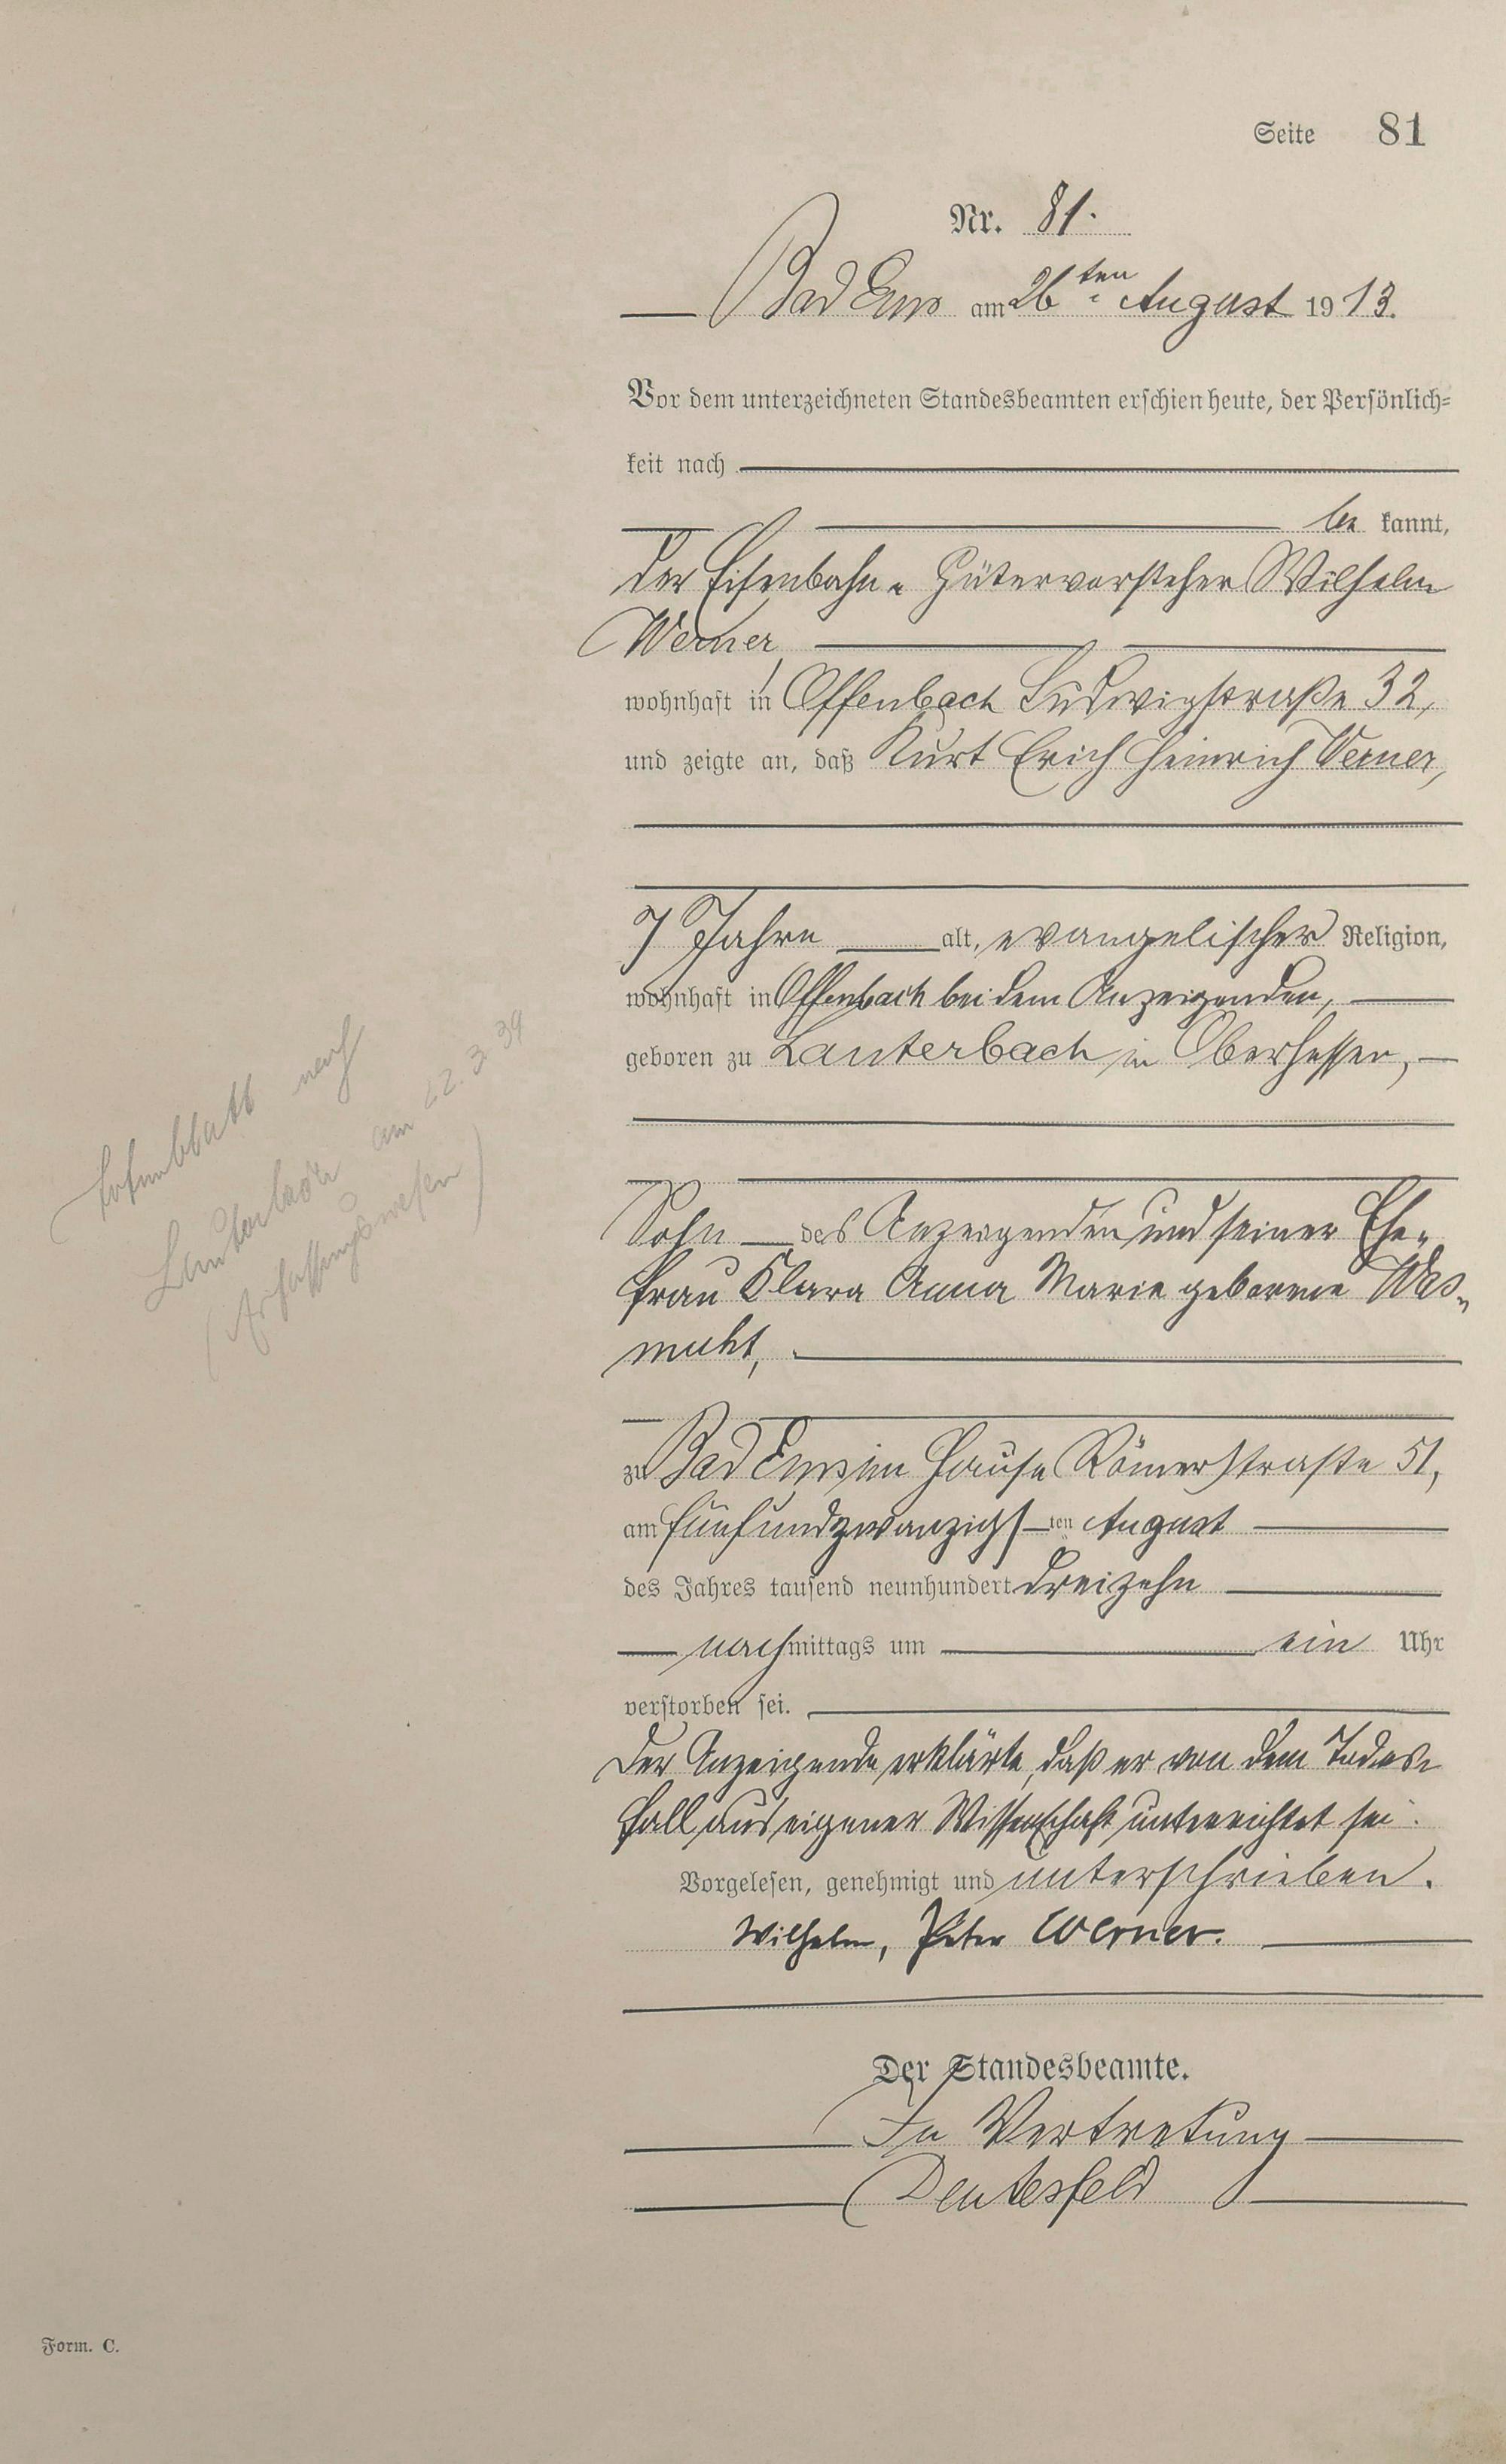 Seite 81
Nr. 81.
Bad Ems am 26ten August 1913.
Vor dem unterzeichneten Standesbeamten erschien heute, der Persönlich=
keit nach
be kannt,
der Eisenbahn-Gütervorsteher Wilhelm
Werner,
wohnhaft in Offenbach Ludwigstraße 32,
und zeigte an, daß Kurt Erich Heinrich Werner,
7 Jahre alt, evangelischer Religion,
wohnhaft in Offenbach bei dem Anzeigenden,
geboren zu Lauterbach in Oberhessen,
Sohn des Anzeigenden und seiner Ehe-
frau Klara Anna Marie geborene Was-
muht,
zu Bad Ems im Hause Römerstraße 51,
am fünfundzwanzigsten August
des Jahres tausend neunhundert dreizehn
nachmittags um ein Uhr
verstorben sei.
Der Anzeigende erklärte, daß er von dem Todes-
fall aus eigener Wissenschaft unterrichtet sei.
Vorgelesen, genehmigt und unterschrieben.
Wilhelm, Peter Werner.
Der Standesbeamte.
In Vertretung
nach
Lauterbach am 22.3.39
(Erfassungswesen)
Form. C.